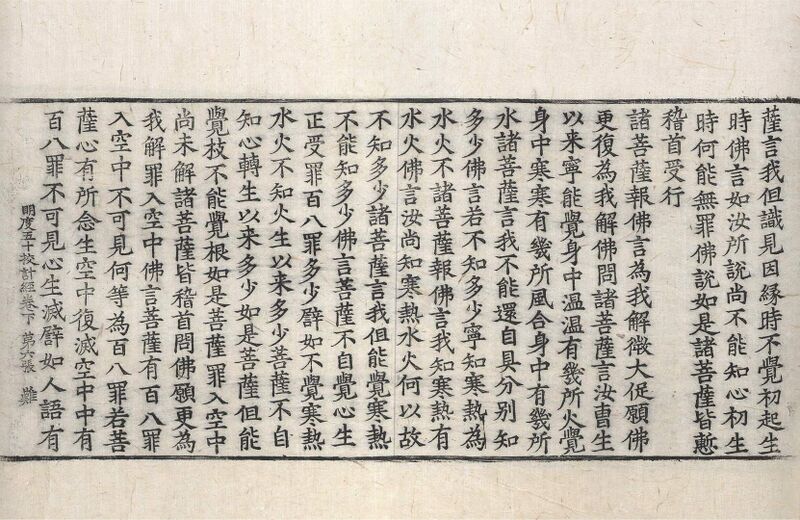 薩言我但識見因緣時不覺初起生
時佛言如汝所說尚不能知心初生
時何能無罪佛說如是諸菩薩皆慙
稽首受行
諸菩薩報佛言為我解微大促願佛
更復為我解佛問諸菩薩言汝曹生
以来寧能覺身中温温有幾所火覺
身中寒寒有幾所風合身中有幾所
水諸菩薩言我不能還自具分別知
多少佛言若不知多少寧知寒熱為
水火不諸菩薩報佛言我知寒熱有
水火佛言汝尚知寒熱水火何以故
不知多少諸菩薩言我但能覺寒熱
不能知多少佛言菩薩不自覺心生
正受罪百八罪多少譬如不覺寒熱
水火不知火生以来多少菩薩不自
知心轉生以来多少如是菩薩但能
覺枝不能覺根如是菩薩罪入空中
尚未解諸菩薩皆稽首問佛願更為
我解罪入空中佛言菩薩有百八罪
入空中不可見何等為百八罪若菩
薩心有所念生空中復滅空中中有
百八罪不可見心生滅譬如人語有
明度五十校計經卷下 第六張 難